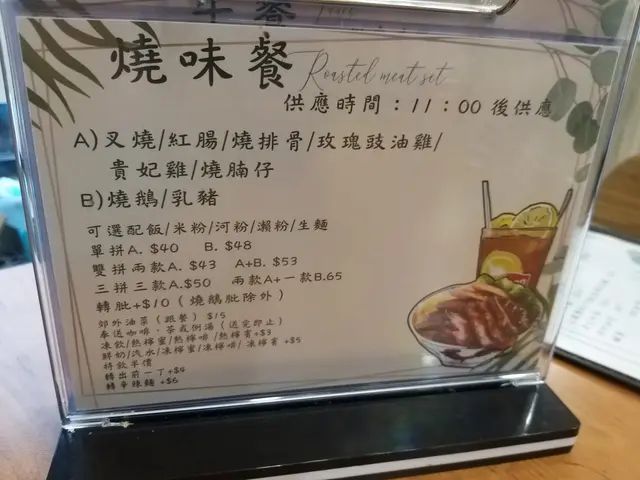 燒味餐 Roasted meat set
供應時間：11：00 後供應
A)叉燒/紅腸/燒排骨/玫瑰豉油雞/
貴妃雞/燒腩仔
B)燒鵝/乳豬
可選配飯/米粉/河粉/瀨粉/生麵
單拼A. $40 B. $48
雙拼兩款A. $43 A+B. $53
三拼三款A.$50 兩款A+一款B.65
轉肶+$10（燒鵝肶除外）
郊外油菜（跟餐）$15
奉送咖啡、茶或例湯（送完即止）
凍飲/熱檸蜜/熱檸啡/熱檸賓+$3
鮮奶/汽水/凍檸蜜/凍檸啡/凍檸賓 +$5
特飲半價
轉出前一丁+$9
轉辛辣麵 +$6